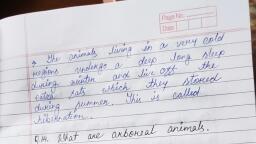 Page No.
Date
→ The animals living in a very cold
regions undergo a deep long sleep
during winter and live off the
fats which they stored
during summer. This is called
hibernation.
Q.14. What are arboreal animals.